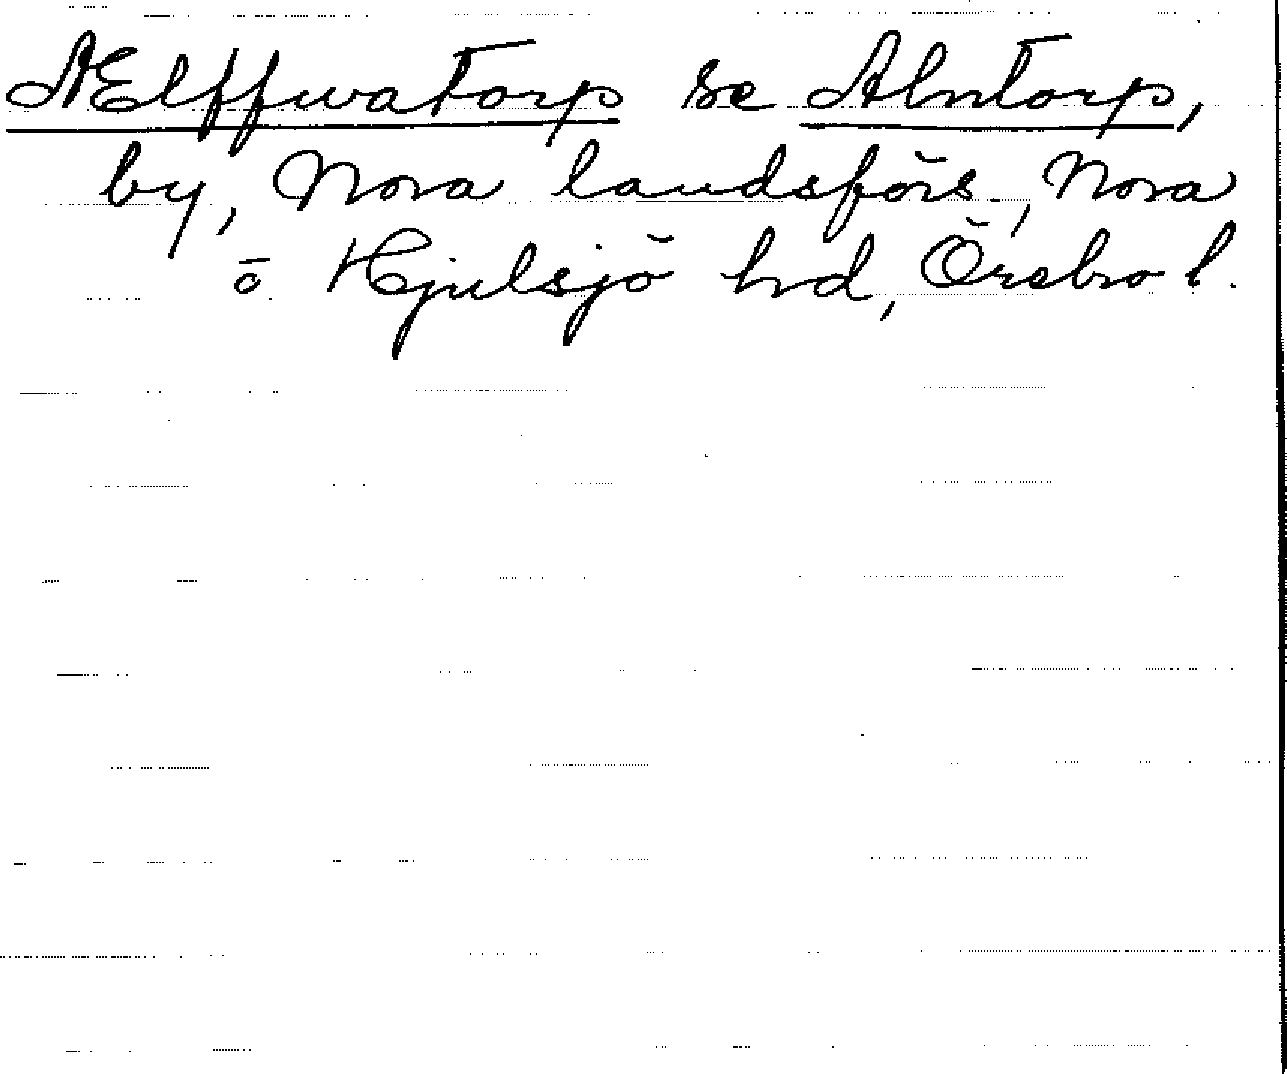 AElffwatorp se Alntorp,
by, Nora landsförs, Nora
o Hjulsjö hd, Örebro l.